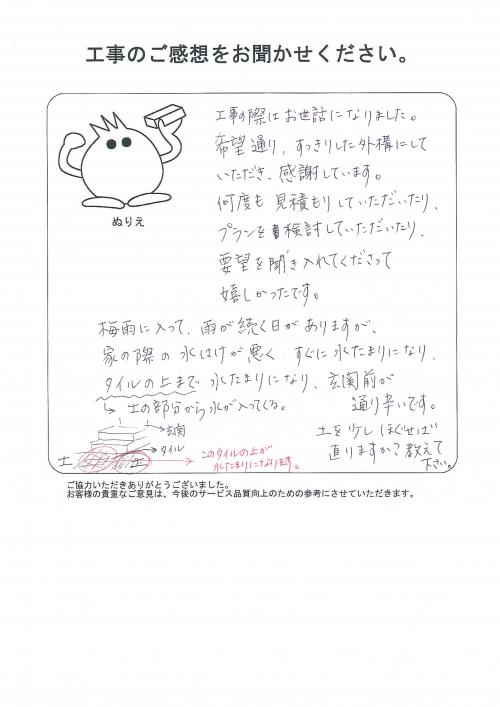 工事のご感想をお聞かせください。
ぬりえ
工事の際はお世話になりました。
希望通り、すっきりした外構にして
いただき、感謝しています。
何度も見積もりしていただいたり、
プランを検討していただいたり、
要望を聞き入れてくださって
嬉しかったです。
梅雨に入って、雨が続く日がありますが、
家の際の水はけが悪く、すぐに水たまりになり、
タイルの上まで水たまりになり、玄関前が
通り辛いです。
→土の部分から水が入ってくる。
土を少しほぐせば
直りますか?教えて
下さい。
→玄関
→タイル
土
土
→このタイルの上が
水たまりになります。
ご協力いただきありがとうございました。
お客様の貴重なご意見は、今後のサービス品質向上のための参考にさせていただきます。